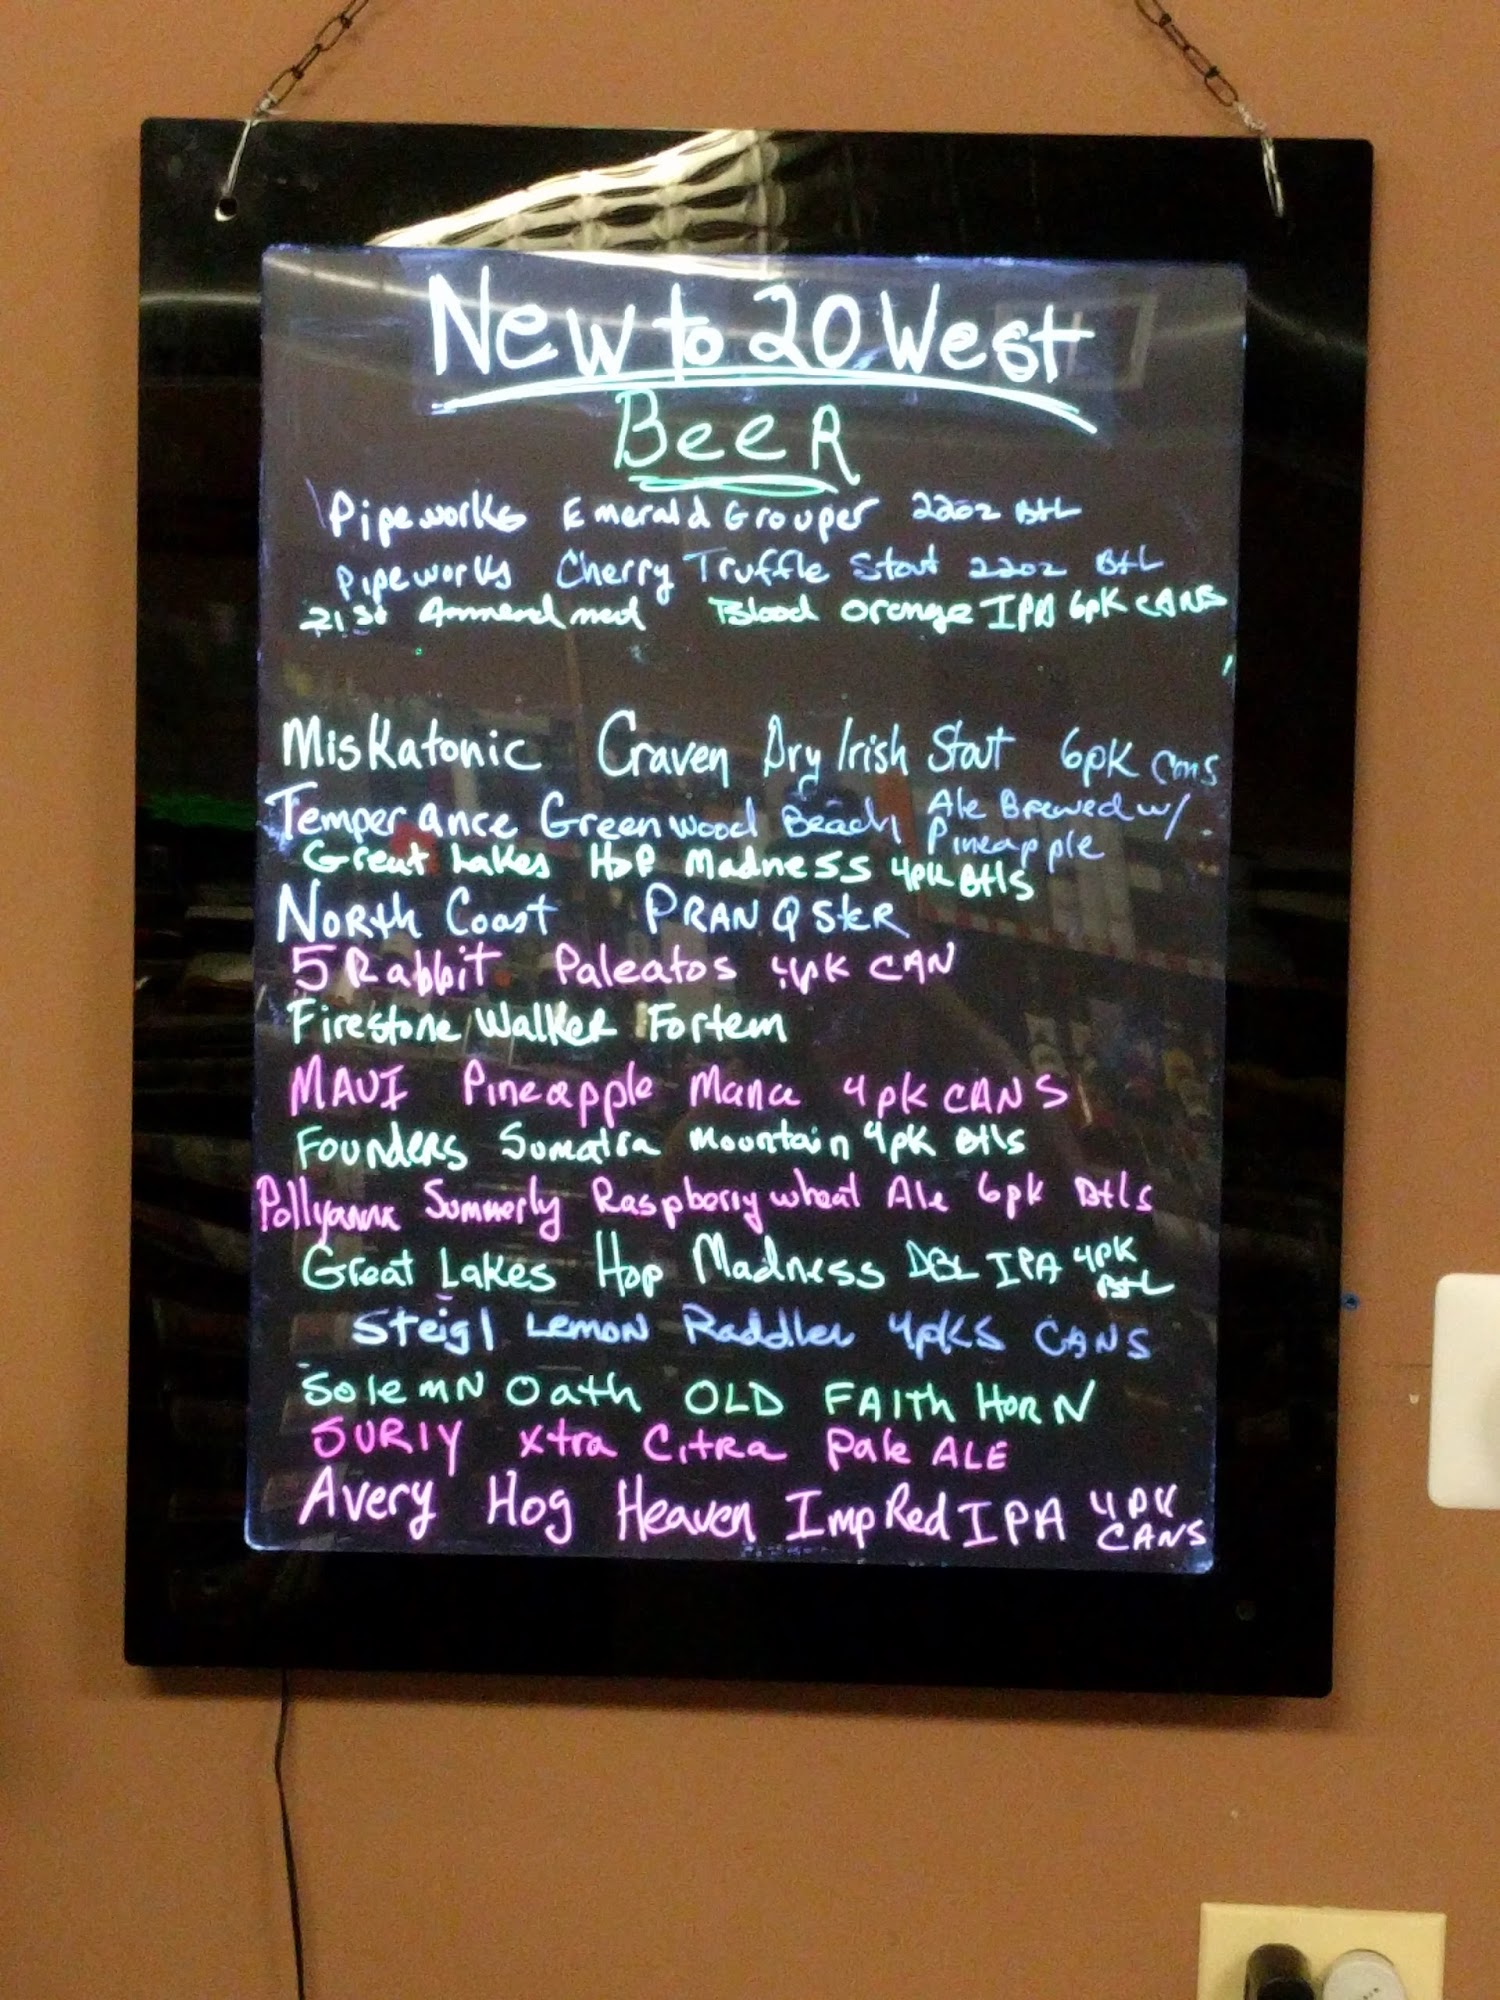 New to 20 West
Beer
Pipeworks Emerald Grouper 22oz Btl
Pipeworks Cherry Truffle Stout 22oz Btl
21st Ammendment Blood Orange IPA 6pk CANS
Miskatonic Craven Dry Irish Stout 6pk Cans
Temperance Greenwood Beach Ale Brewed w/ Pineapple
Great Lakes Hop Madness 4pk Btls
North Coast PRANQSTER
5 Rabbit Paleatos 4pk CAN
Firestone Walker Fortem
MAUI Pineapple Mana 4pk CANS
Founders Sumatra Mountain 4pk Btls
Pollyanna Summerly Raspberry wheat Ale 6pk Btls
Great Lakes Hop Madness DBL IPA 4pk Btl
Steigl Lemon Raddler 4pks CANS
Solemn Oath OLD FAITHHORN
SURLY Xtra Citra Pale ALE
Avery Hog Heaven Imp Red IPA 4pk CANS